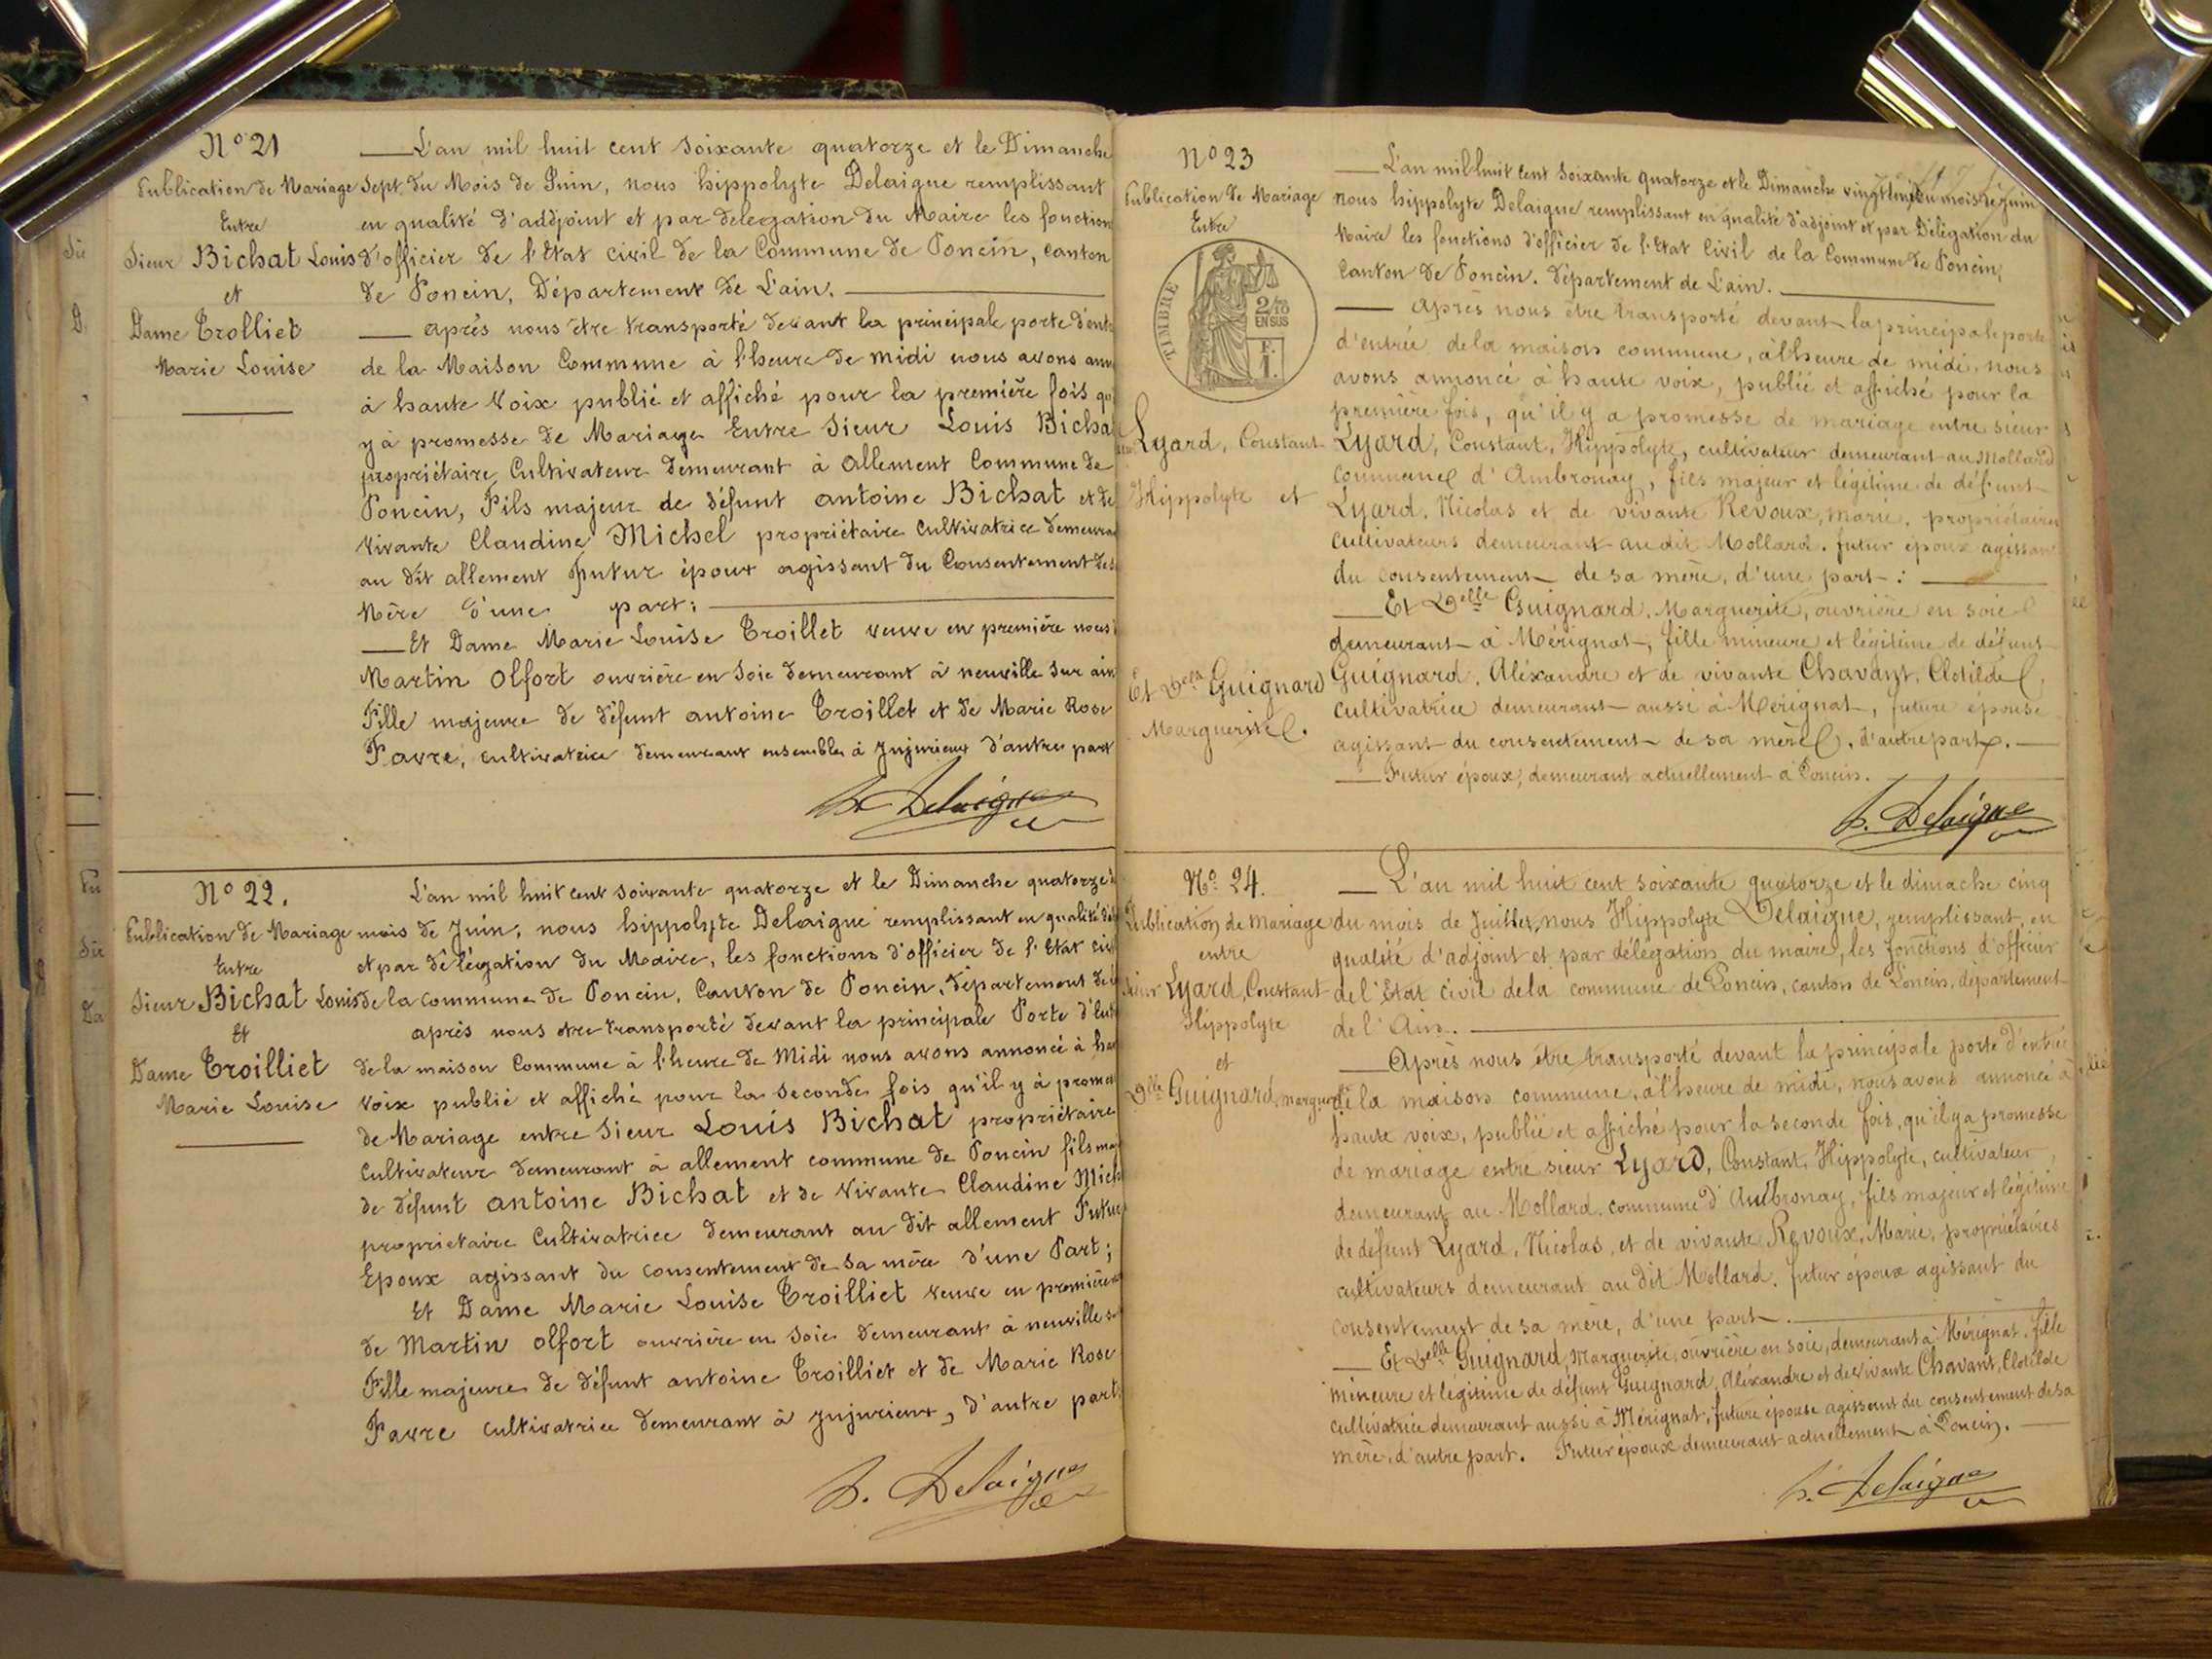 N° 21
Publication de Mariage
Entre
Sieur Bichat Louis
et
Dame Trolliet
Marie Louise
L'an mil huit cent soixante quatorze et le Dimanche
Sept. du Mois de Juin, nous hippolyte Delaigue remplissant
en qualité d'addjoint et par délégation du Maire les fonction
d'officier de l'Etat civil de la Commune de Poncin, canton
de Poncin, Département de L'ain.
après nous être transporté devant la principale porte d'ent
de la Maison Commune à l'heure de midi nous avons ann
à haute Voix publié et affiché pour la première fois qu
y à promesse de Mariage Entre Sieur Louis Bicha
propriétaire Cultivateur demeurant à Allement Commune de
Poncin, Fils majeur de défunt antoine Bichat et de
Vivante Claudine Michel propriétaire Cultivatrice demeura
au dit allement futur époux agissant du Consentement de s
Mère d'une part;
Et Dame Marie Louise Troillet veuve en première noces
Martin Olfort ouvrière en Soie demeurant à neuville sur ain
Fille majeure de défunt antoine Troillet et de Marie Rose
Favre, cultivatrice demeurant ensembles à Jujurieux d'autre part
h. Delaigue
N° 22.
Publication de Mariage
Entre
Sieur Bichat Louis
Et
Dame Troilliet
Marie Louise
L'an mil huit cent soixante quatorze et le Dimanche quatorze
mois de Juin, nous hippolyte Delaigue remplissant en qualité
et par délégation du Maire, les fonctions d'officier de l'Etat civ
de la commune de Poncin, Canton de Poncin, Département de
après nous etre transporté devant la principale Porte d'Ent
de la maison Commune à l'heure de Midi nous avons annoncé à hau
Voix publié et affiché pour la seconde fois qu'il y à prome
de Mariage entre Sieur Louis Bichat propriétaire
Cultivateur demeurant à allement commune de Poncin fils ma
de défunt antoine Bichat et de Vivante Claudine Mich
propriétaire Cultivatrice demeurant au dit allement Futur
Epoux agissant du consentement de sa mère d'une Part;
Et Dame Marie Louise Troilliet veuve en première
de Martin Olfort ouvrière en Soie demeurant à neuville s
Fille majeure de défunt antoine Troilliet et de Marie Rose
Favre cultivatrice demeurant à Jujurieux, d'autre part
h. Delaigue
N° 23
Publication de Mariage
Entre
TIMBRE
2/10
EN SUS
F.
1.
Lyard, Constant
Hippolyte et
Et Delle Guignard
Marguerite.
L'an mil huit cent soixante quatorze et le Dimanche vingt huit du mois de Juin
nous hippolyte Delaigue remplissant en qualité d'adjoint et par Délégation du
Maire les fonctions d'officier de l'Etat Civil de la Commune de Poncin,
Canton de Poncin. Département de L'ain.
Après nous être transporté devant la principale porte
d'entrée de la maison commune, à l'heure de midi, nous
avons annoncé à haute voix, publié et affiché pour la
première fois, qu'il y a promesse de mariage entre sieur
Lyard, Constant, Hippolyte, cultivateur demeurant au Mollard
commune d'Ambronay, fils majeur et légitime de défunt
Lyard, Nicolas et de vivante Revoux, Marie, propriétaires
cultivateurs demeurant audit Mollard. futur époux agissant
du consentement de sa mère, d'une part :
Et Delle Guignard, Marguerite, ouvrière en soie
demeurant à Mérignat, fille mineure et légitime de défunt
Guignard, Aléxandre et de vivante Chavant, Clotilde,
cultivatrice demeurant aussi à Mérignat, future épouse
agissant du consentement de sa mère, d'autre part.
Futur époux, demeurant actuellement à Poncin.
h. Delaigue
N° 24.
Publication de mariage
entre
sieur Lyard, Constant
Hippolyte
et
Delle Guignard, marguerite
L'an mil huit cent soixante quatorze et le dimache cinq
du mois de Juillet, nous Hippolyte Delaigue, remplissant, en
qualité d'adjoint et par délégation du maire, les fonctions d'officier
de l'Etat civil de la commune de Poncin, canton de Poncin, département
de l'Ain.
Après nous être transporté devant la principale porte d'entrée
de la maison commune, à l'heure de midi, nous avons annoncé à
haute voix, publié et affiché pour la seconde fois, qu'il y a promesse
de mariage entre sieur Lyard, Constant, Hippolyte, cultivateur,
demeurant au Mollard, commune d'Ambronay, fils majeur et légitime
de défunt Lyard, Nicolas, et de vivante Revoux, Marie, propriétaires
cultivateurs demeurant au dit Mollard. futur époux agissant du
consentement de sa mère, d'une part.
Et Delle Guignard, Marguerite, ouvrière en soie, demeurant à Mérignat, fille
mineure et légitime de défunt Guignard, Aléxandre et de vivante Chavant, Clotilde
cultivatrice demeurant aussi à Mérignat, future épouse agissant du consentement de sa
mère, d'autre part. Futur époux demeurant actuellement à Poncin.
h. Delaigue